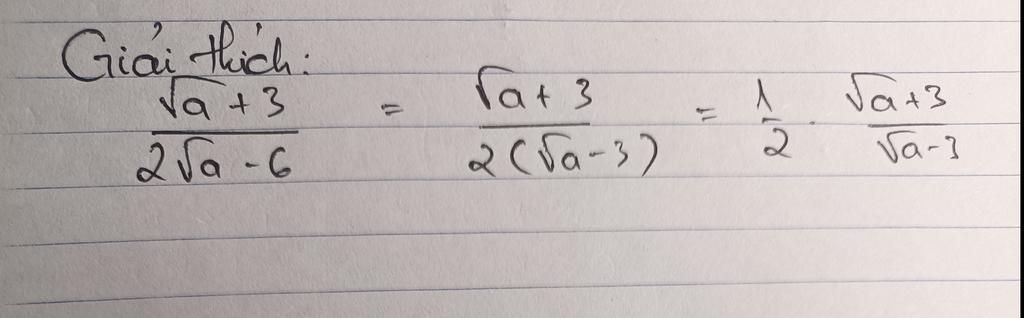 Giải thích:
√a + 3 / 2√a - 6 = √a + 3 / 2(√a - 3) = 1/2 . √a + 3 / √a - 3